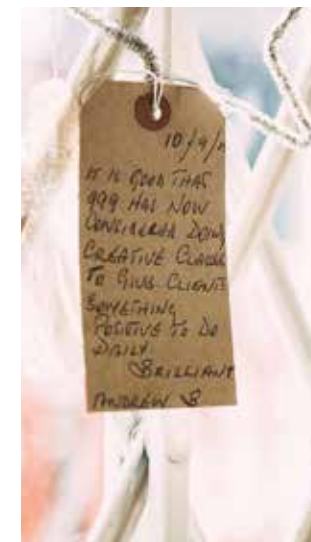 10/9/
IT IS GOOD THAT
999 HAS NOW
CONSIDERED DOING
CREATIVE CLASSES
TO GIVE CLIENTS
SOMETHING
POSITIVE TO DO
DAILY
BRILLIANT
ANDREW B